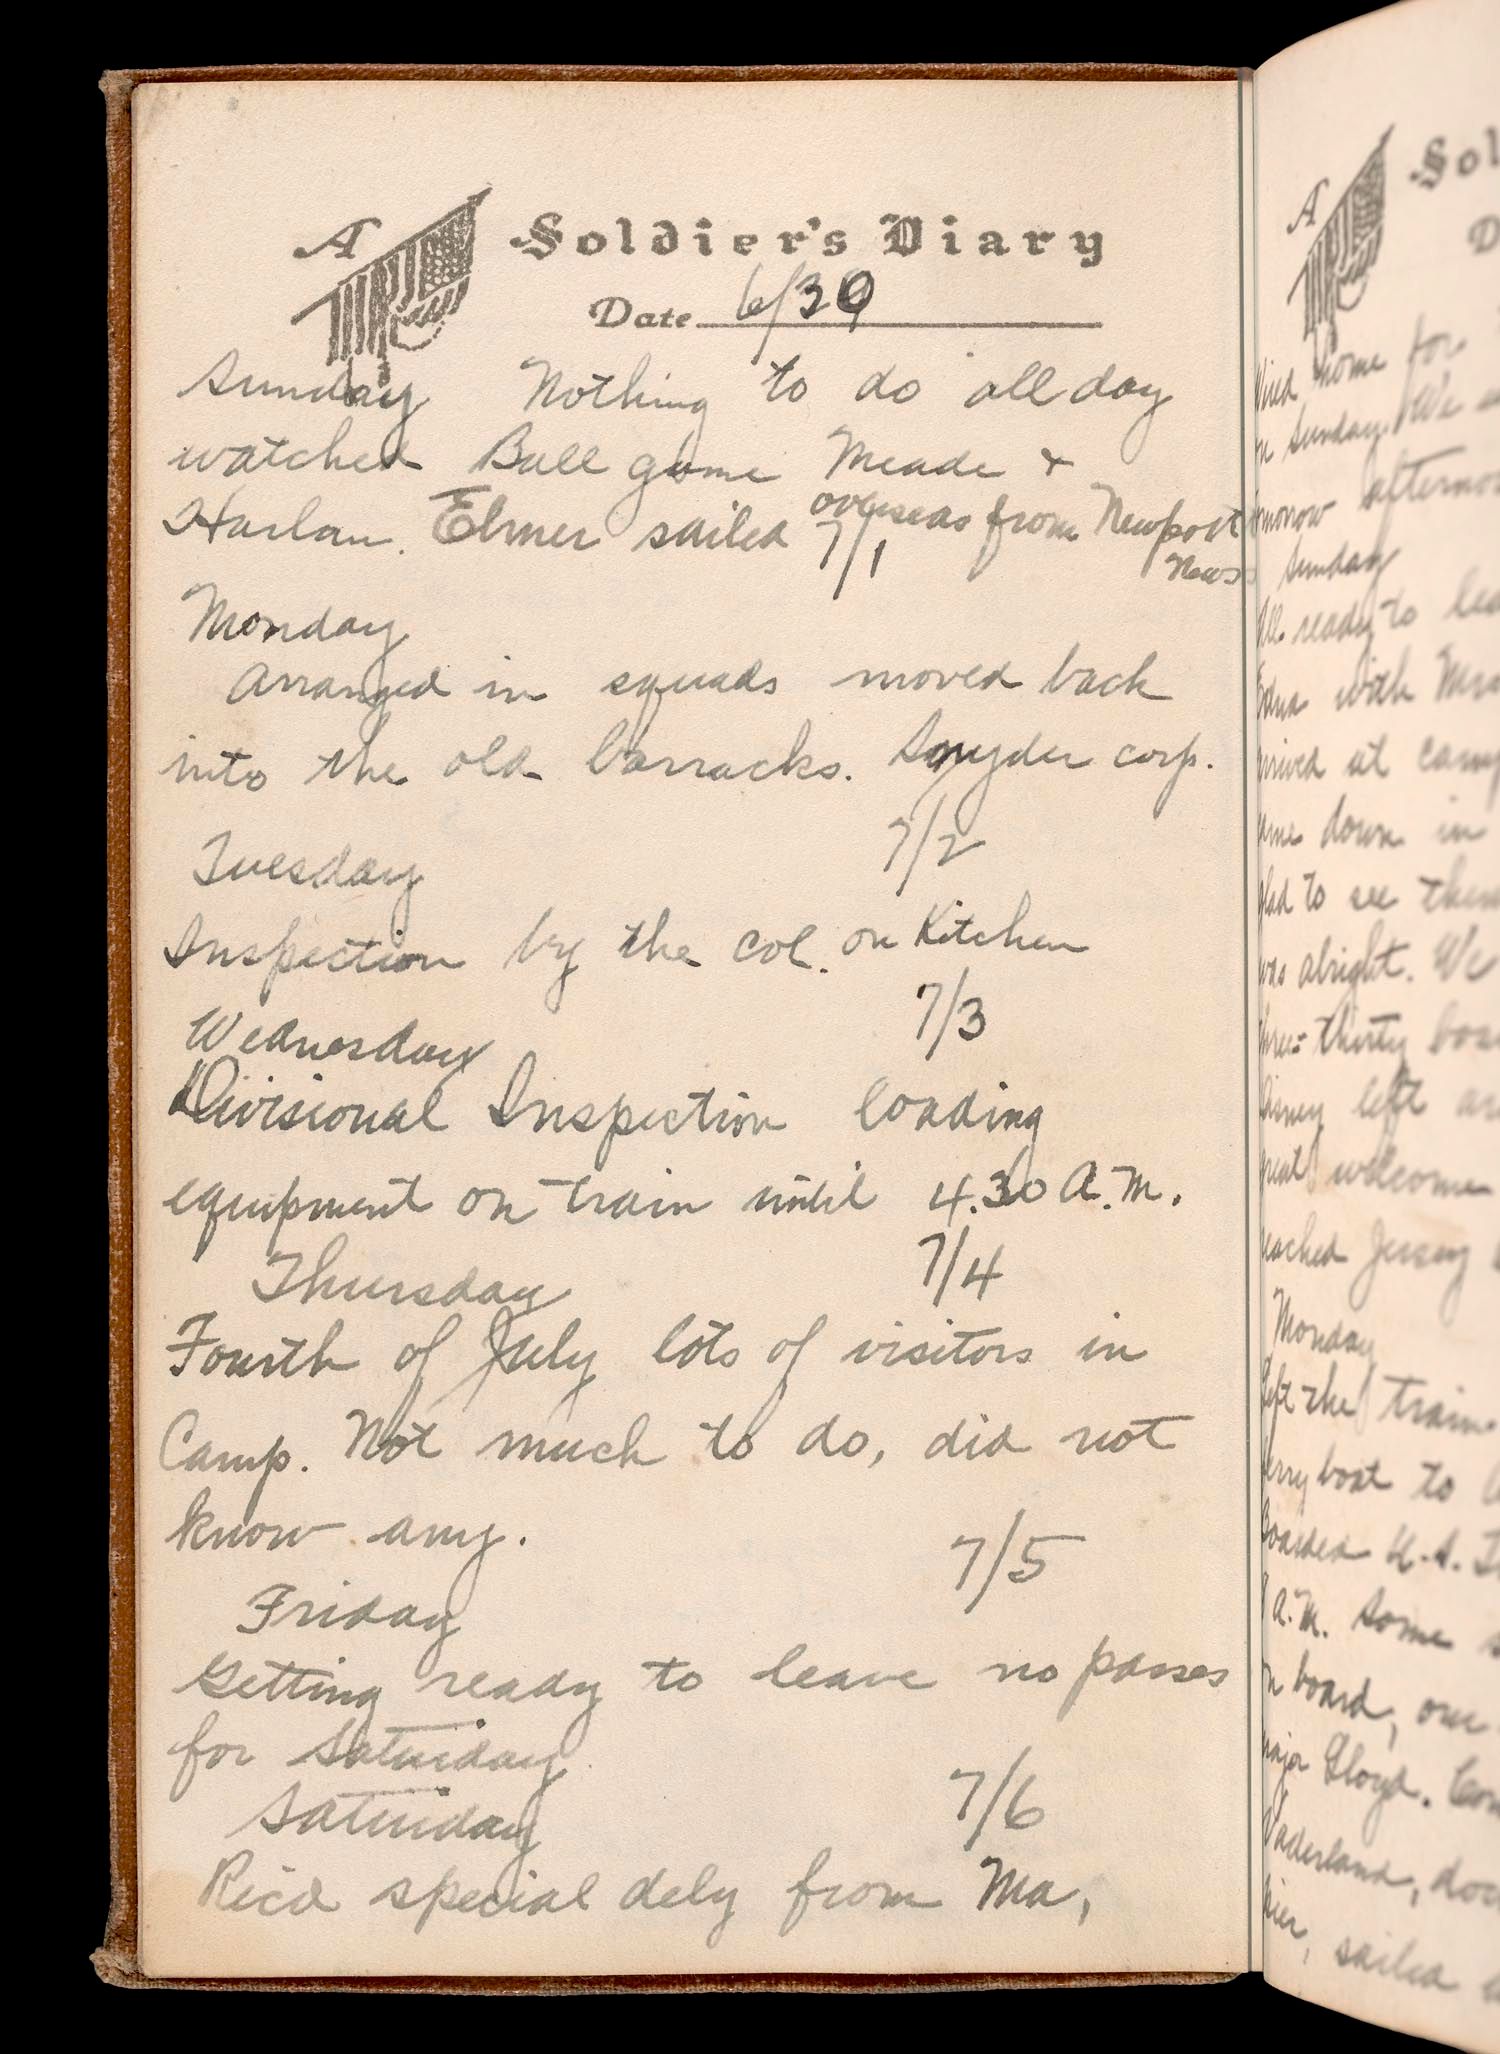 A Soldier's Diary
Date 6/30
Sunday Nothing to do all day
watched Ball game Meade &
Harlan. Elmer sailed overseas from Newport
News
7/1
Monday
Arranged in squads moved back
into the old barracks. Snyder corp.
7/2
Tuesday
Inspection by the col. on Kitchen
7/3
Wednesday
Divisional Inspection loading
equipment on train until 4.30 A.M.
7/4
Thursday
Fourth of July lots of visitors in
Camp. Not much to do, did not
know any.
7/5
Friday
Getting ready to leave no passes
for Saturday
7/6
Saturday
Recd special dely from Ma,
A Sol
D
home for
on Sunday. We
afternoon
Sunday
All ready to
with
arrived at camp
came down in
glad to see them
was alright. We
three-thirty
left
great welcome
reached Jersey
Monday
left the train
ferry boat to
Boarded U.S.
A.M. Some
on board, our
major Lloyd.
Vaderland,
pier, sailed